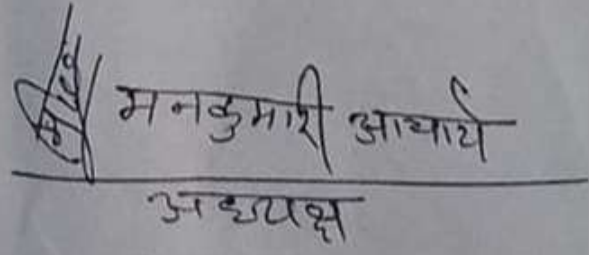 मनकुमारी आचार्य
अध्यक्ष